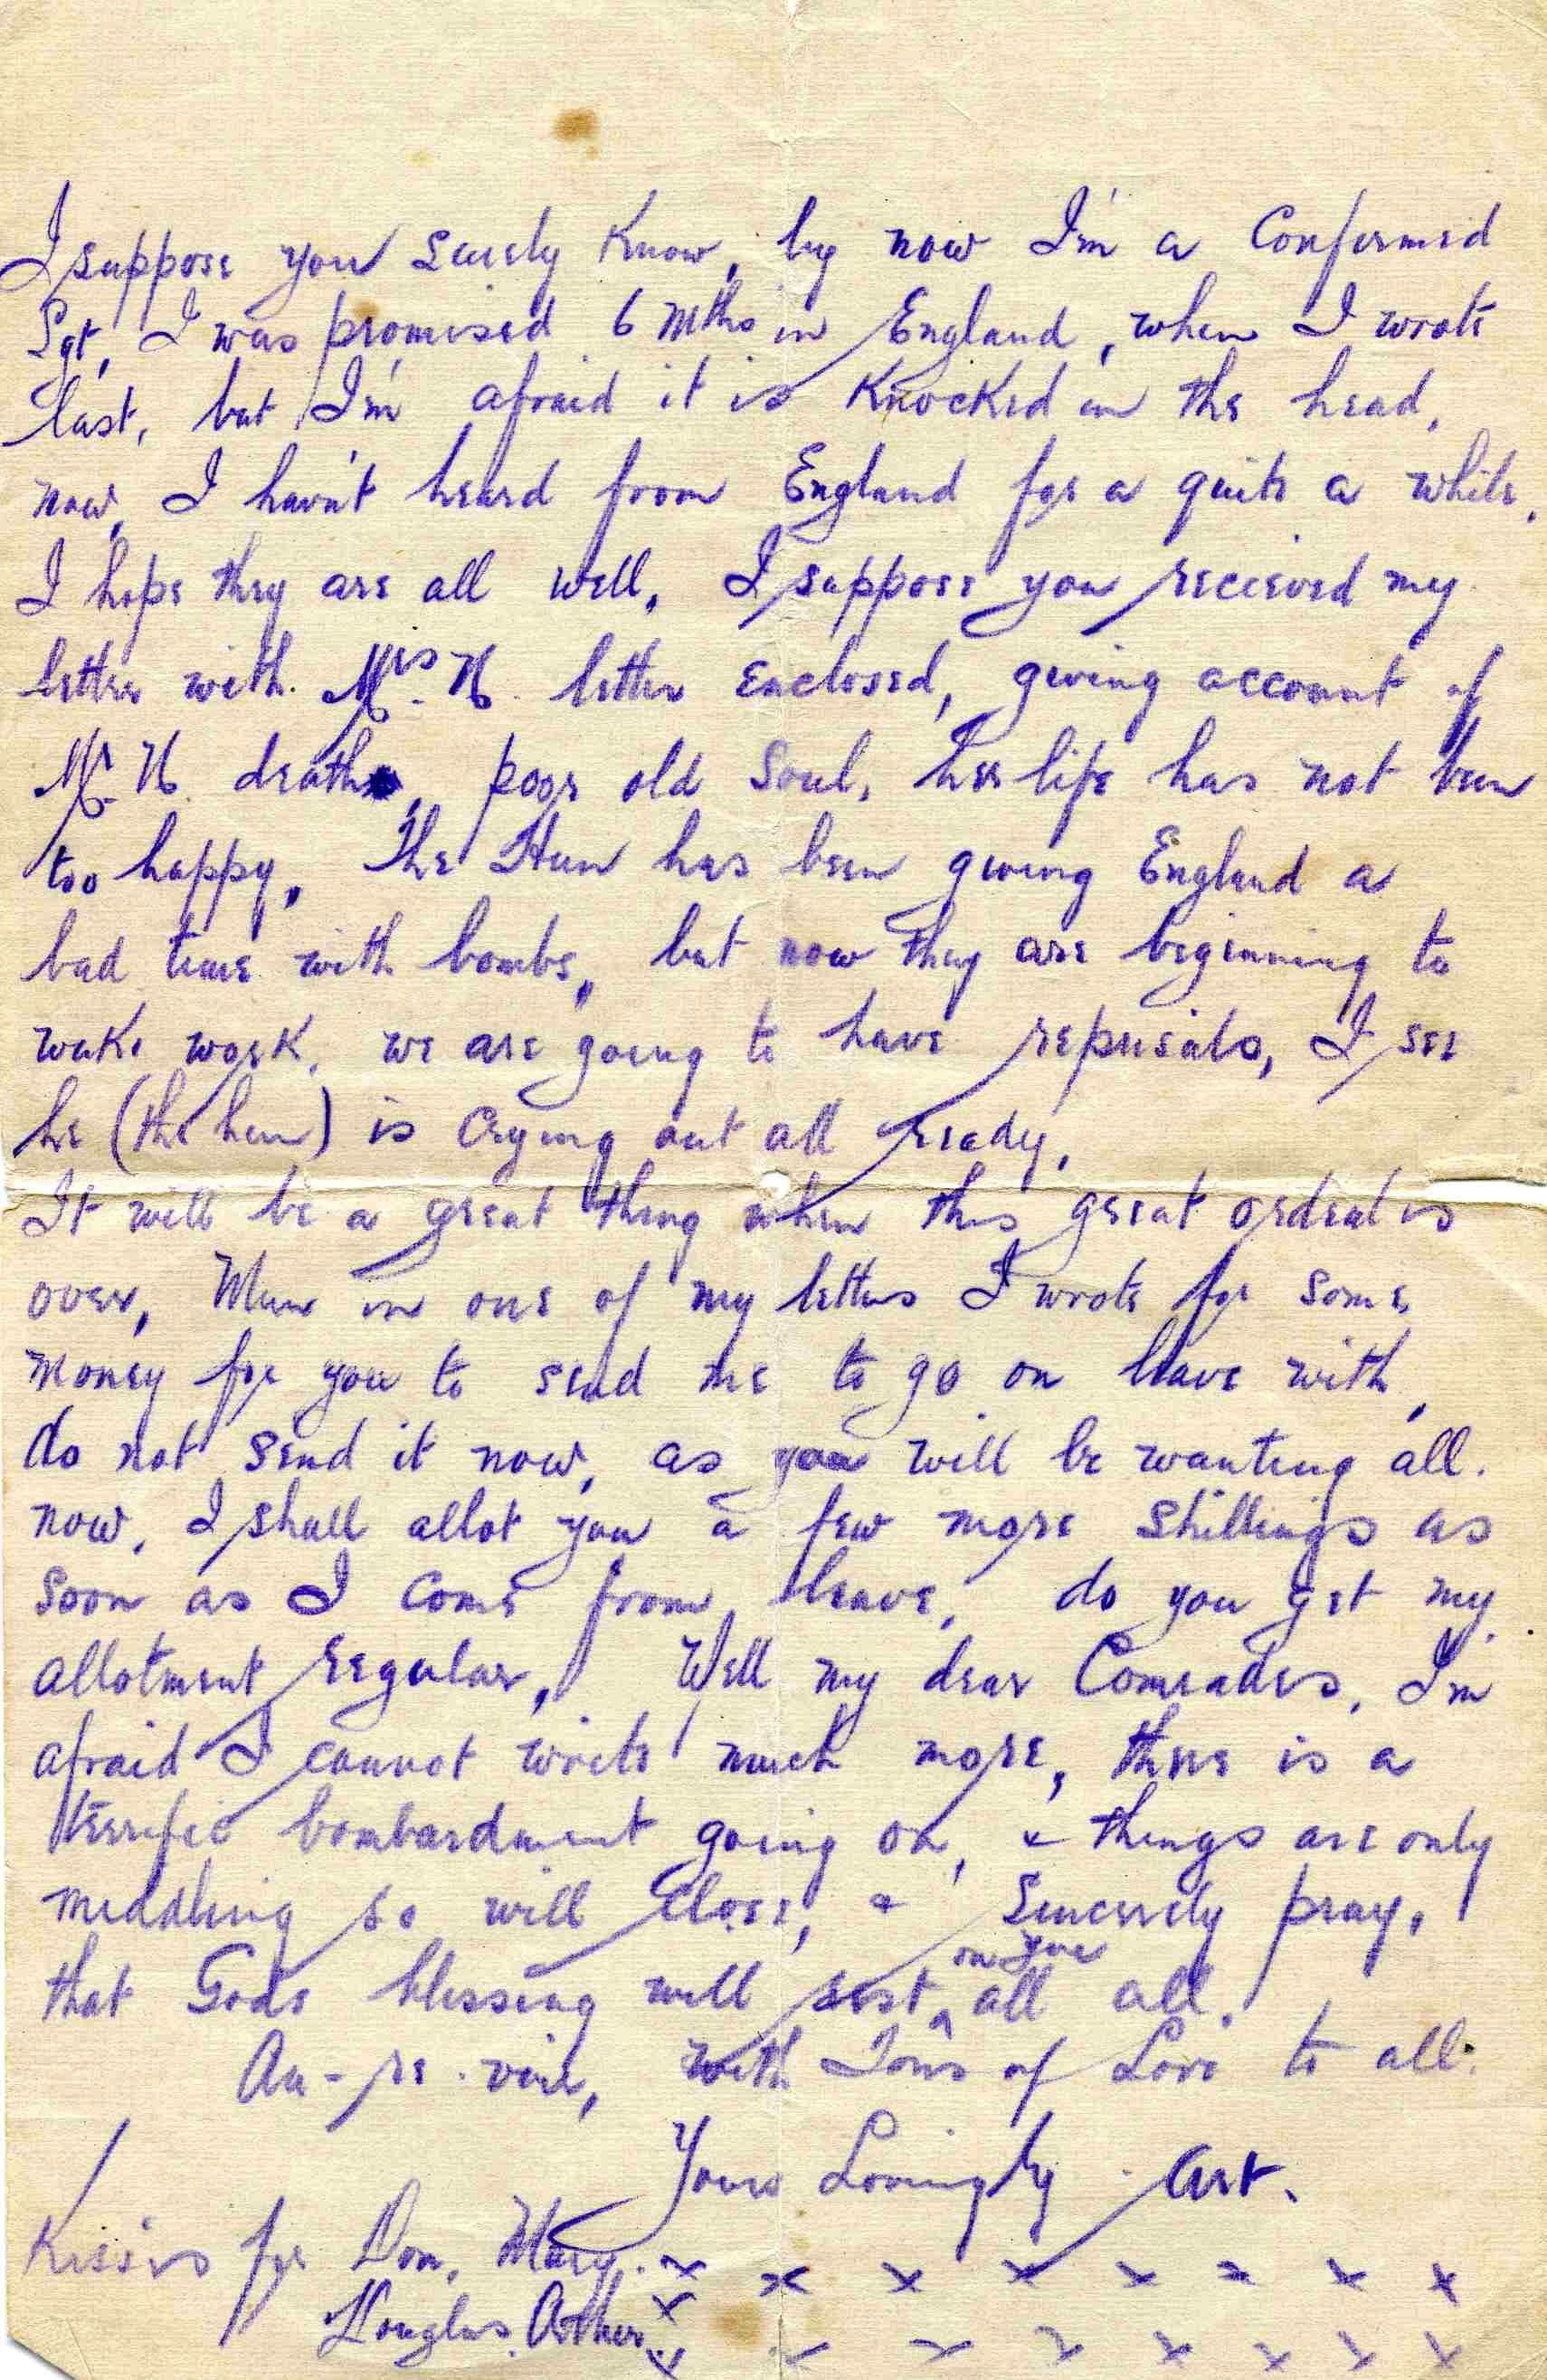 I suppose you surely know, by now I'm a Confirmed
Sgt, I was promised 6 mths in England, when I wrote
last, but I'm afraid it is knocked on the head,
now, I havn't heard from England for a quite a while,
I hope they are all well, I suppose you recieved my
letter with Mrs. H. letter enclosed, giving account of
Mr. H. death, poor old soul, her life has not been
too happy, The Hun has been giving England a
bad time with bombs, but now they are beginning to
wake work, we are going to have reprisals, I see
he (the hun) is crying out all ready,
It will be a great thing when this great ordeal is
over, Mum in one of my letters I wrote for some
money for you to send me to go on leave with,
do not send it now, as you will be wanting all.
now, I shall allot you a few more shillings as
soon as I come from leave, do you get my
allotment regular, Well my dear Comrades, I'm
afraid I cannot write much more, there is a
terrific bombardment going on, & things are only
middling so will close, & sincerely pray,
that Gods blessing will rest on you all all.
Au-re-voir, with Tons of Love to all.
Yours Lovingly Art.
Kisses for Don, Mary. x x x x x x x x
x
Douglas. Arthur. x x x x x x x x